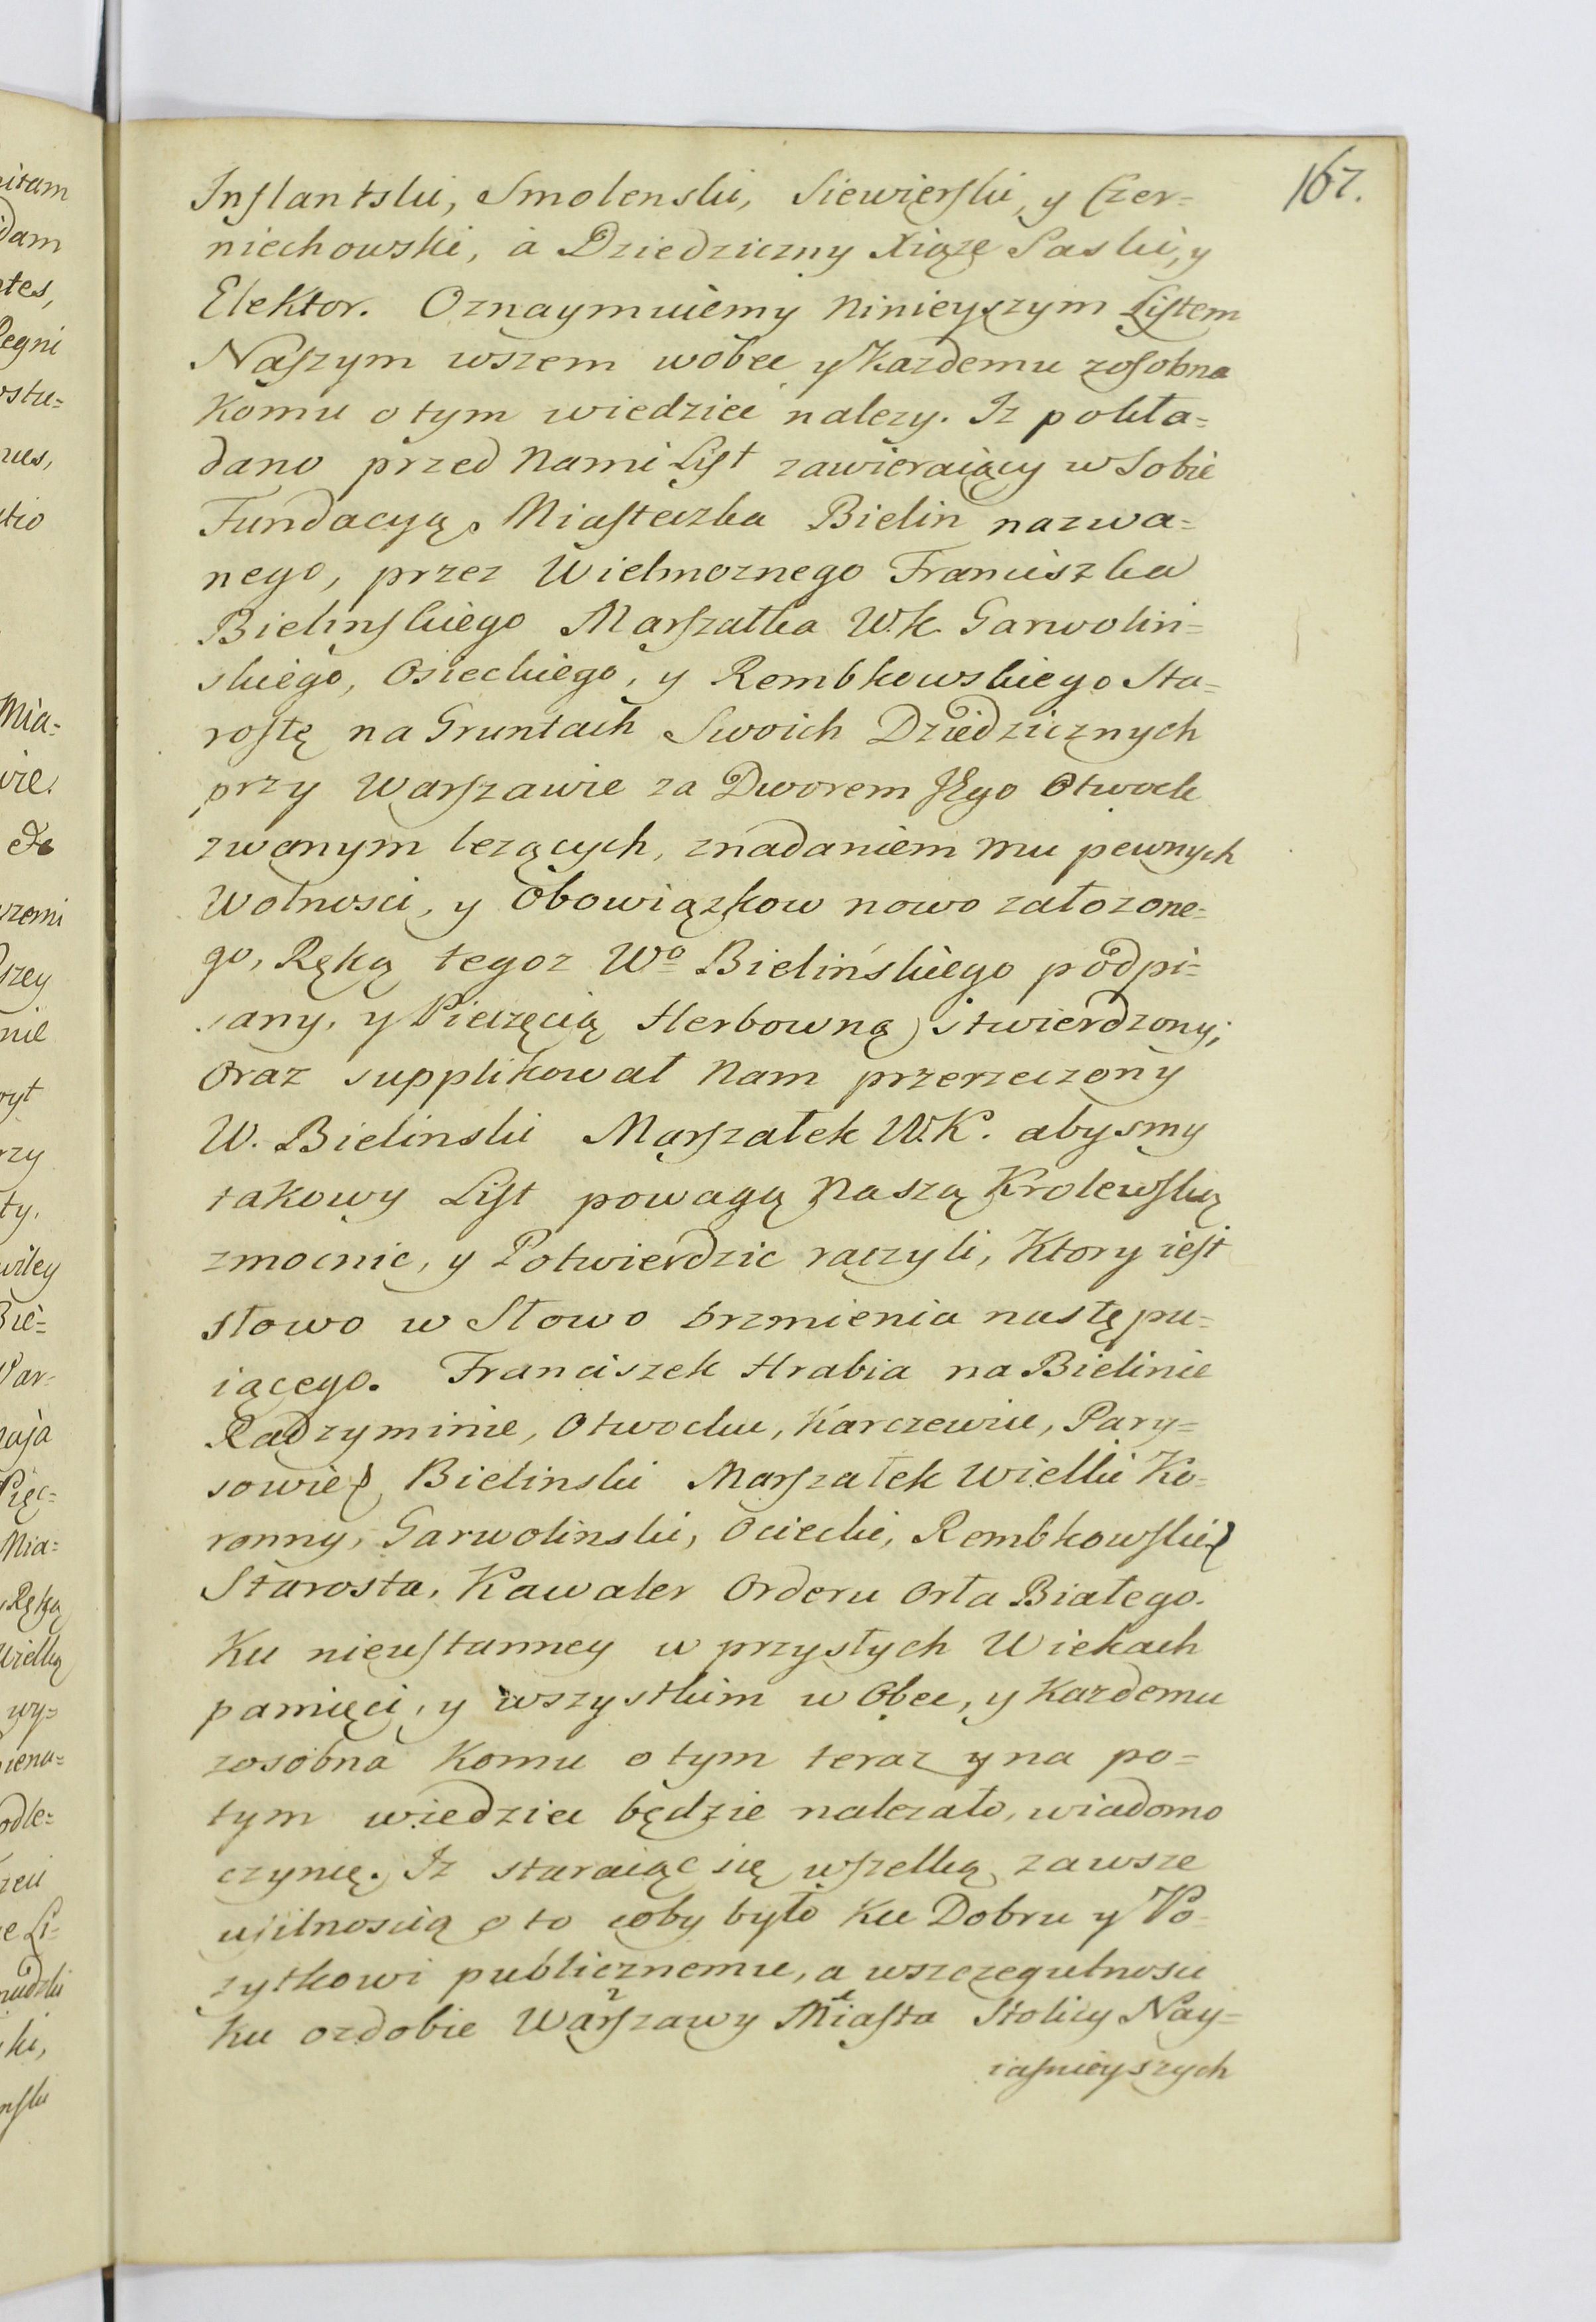 167.
Inflantski, Smolenski, Siewierski, y Czer=
niechowski, à Dziedziczny Xiąze Saski, y
Elektor. Oznaymuiemy Ninieyszym Listem
Naszym wszem wobec y Kazdemu zosobna
Komu o tym wiedziec nalezy. Iz pokła=
dano przed Nami List zawieraiący w Sobie
Fundacyą Miasteczka Bielin nazwa=
nego, przez Wielmoznego Franciszka
Bielinskiego Marszałka W.K. Garwolin=
skiego, Osieckiego, y Rembkowskiego Sta=
rostę na Gruntach Swoich Dziedzicznych
przy Warszawie za Dworem JEgo Otwock
zwanym lezących, znadaniem mu pewnych
Wolnosci, y Obowiązkow nowo załozone=
go, Ręką tegoz Wo Bielińskiego podpi=
sany, y Pieczęcią Herbowną stwierdzony;
Oraz supplikował Nam przerzeczony
W. Bielinski Marszałek W.K. abysmy
takowy List powagą Naszą Krolewską
zmocnic, y Potwierdzic raczyli, Ktory iest
słowo w Słowo brzmienia następu=
iącego. Franciszek Hrabia na Bielinie
Radzyminie, Otwocku, Karczewie, Pary=
sowie, Bielinski Marszałek Wielki Ko=
ronny, Garwolinski, Ociecki, Rembkowski
Starosta, Kawaler Orderu Orła Białego.
Ku nieustanney w przysłych Wiekach
pamięci, y wszystkim w Obec, y Kazdemu
zosobna Komu o tym teraz y na po=
tym wiedziec będzie nalezało, wiadomo
czynię. Iz staraiąc się wszelką zawsze
usilnoscią o to coby było Ku Dobru y Po=
zytkowi publicznemu, a wszczegulnosci
Ku ozdobie Warszawy Miasta Stolicy Nay=
iasnieyszych